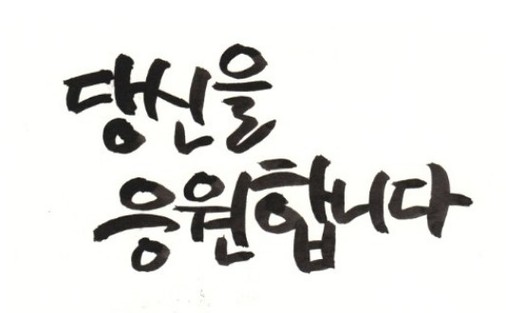 당신을
응원합니다